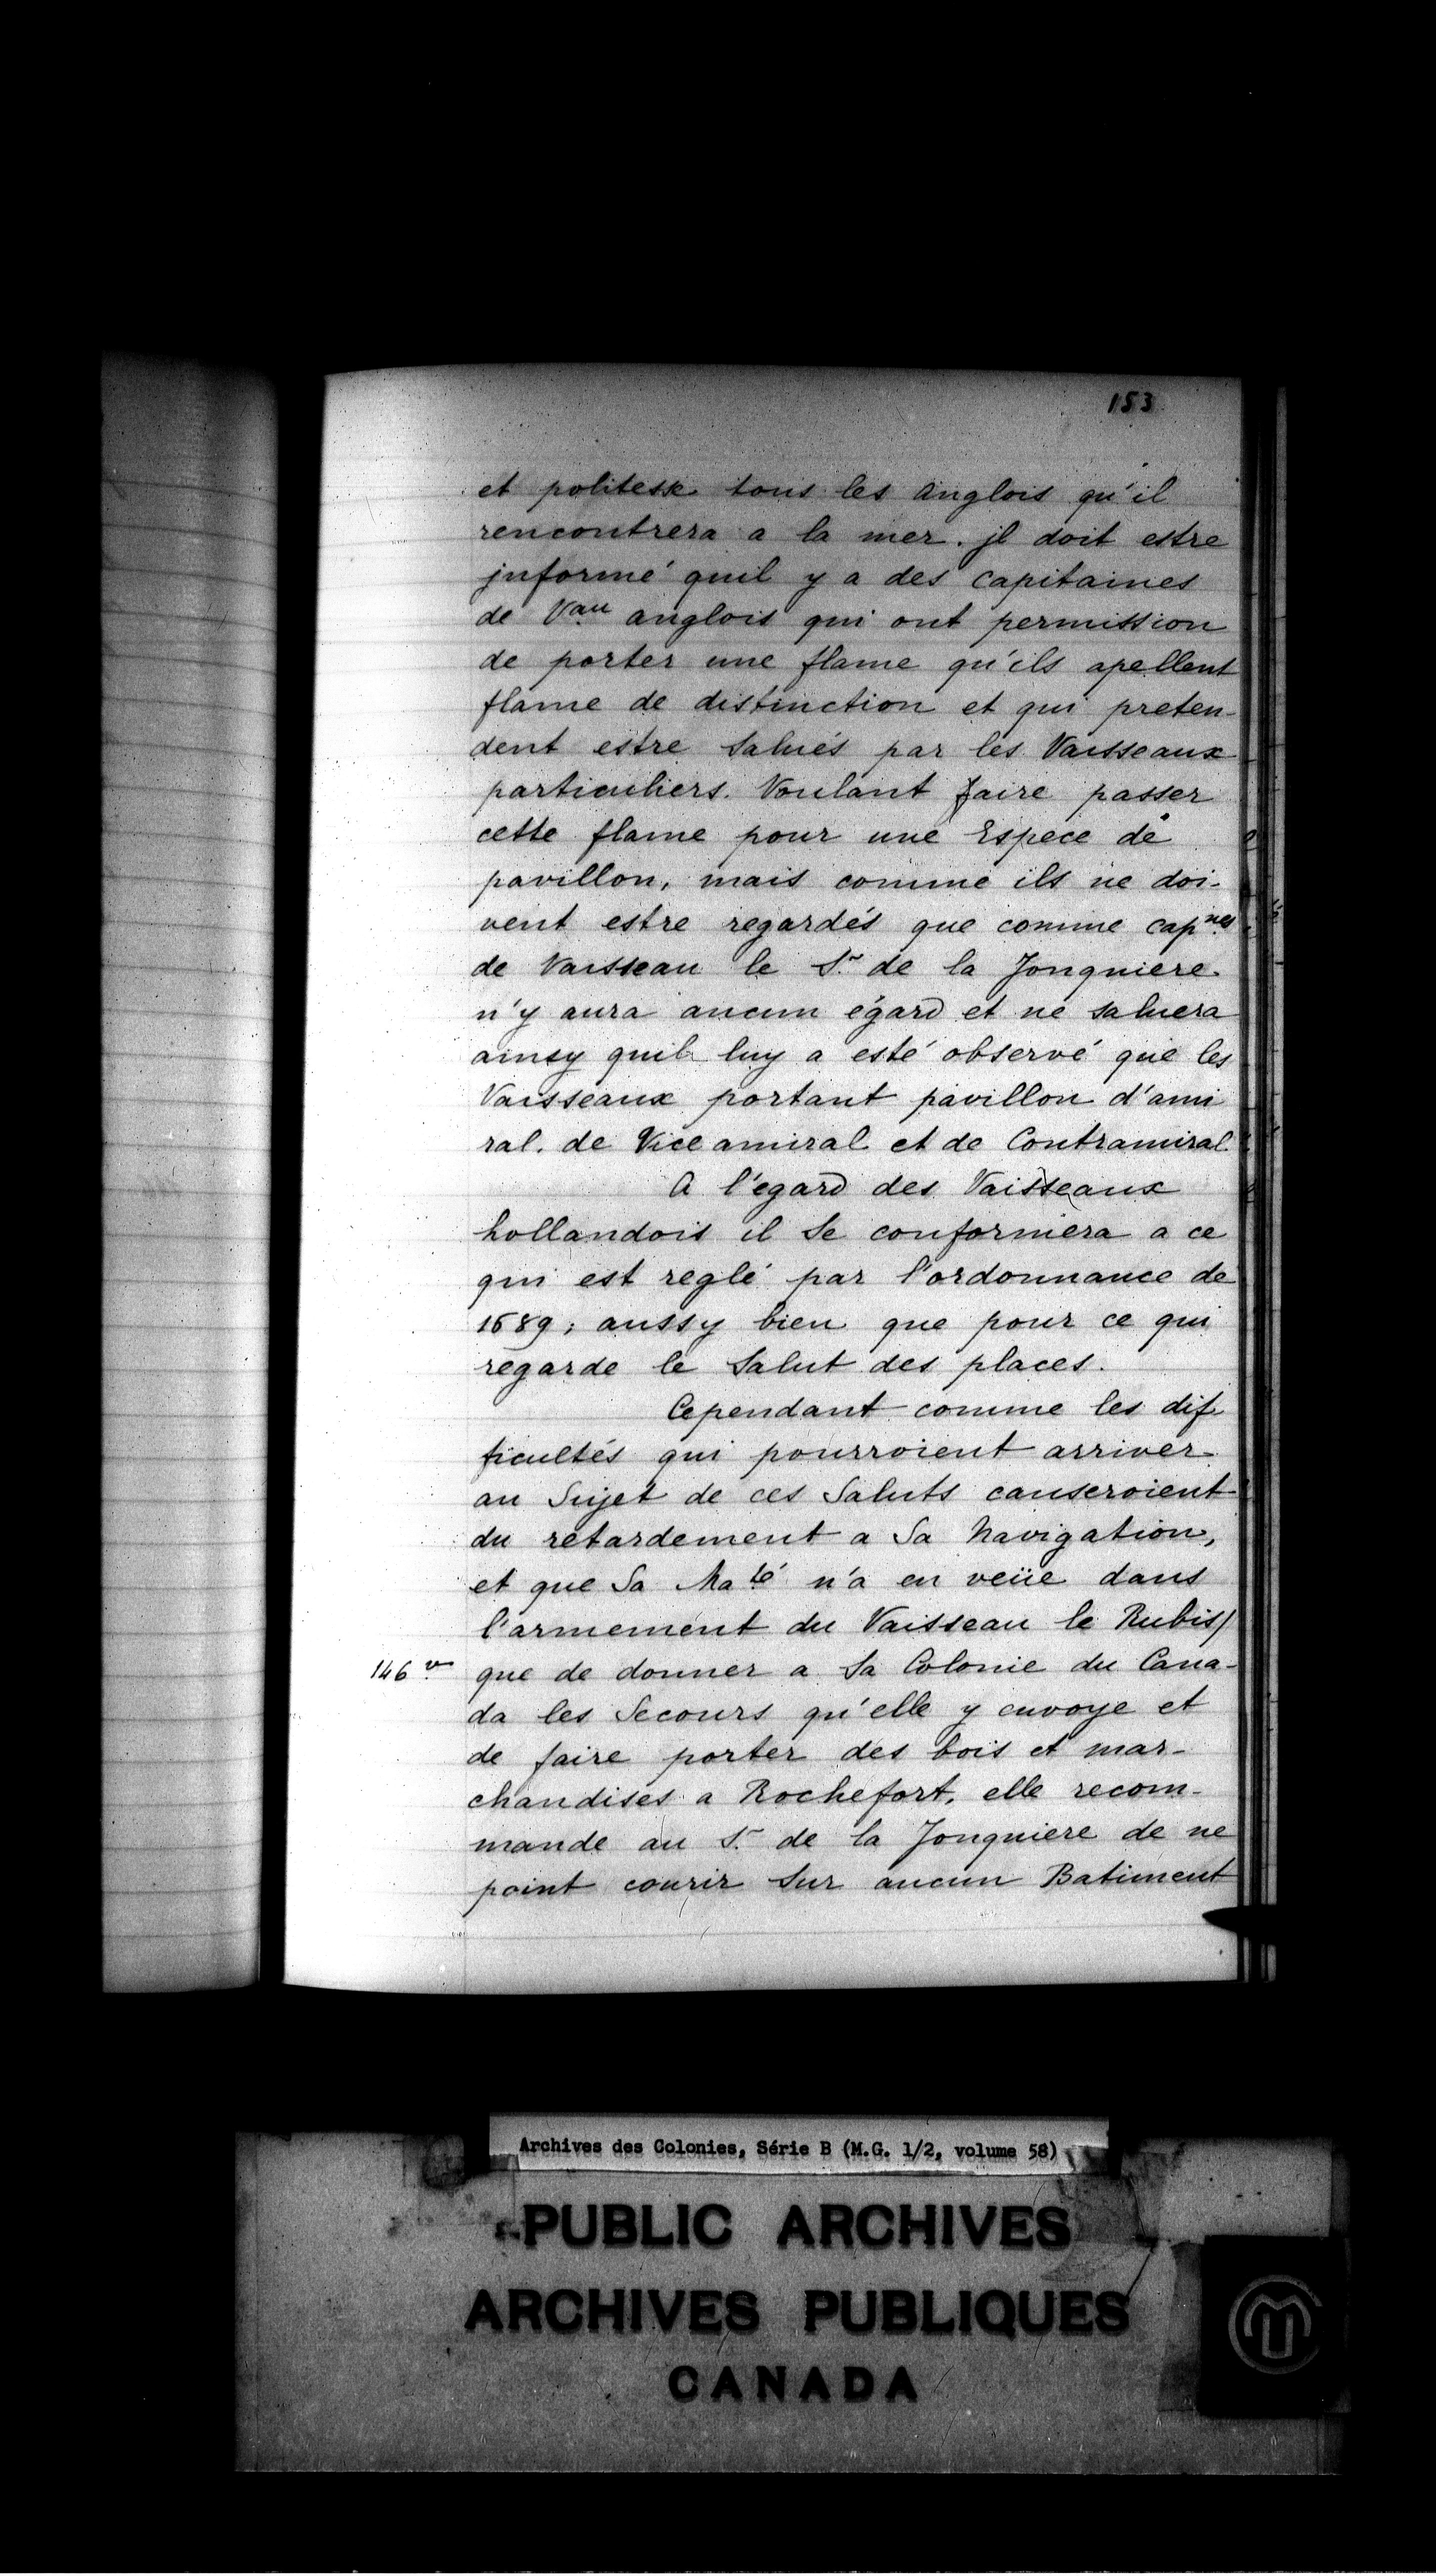 153
et politesse tous les anglois qu'il
rencontrera a la mer. jl doit estre
jnformé quil y a des capitaines
de Vau anglois qui ont permission
de porter une flame qu'ils apellent
flame de distinction et qui preten-
dent estre Salués par les Vaisseaux
particuliers. Voulant faire passer
cette flame pour une Espece de
pavillon, mais comme ils ne doi-
vent estre regardés que comme capnes
de Vaisseau le Sr de la Jonquiere
n'y aura aucun égard et ne saluera
ainsy quil luy a esté observé que les
Vaisseaux portant pavillon d'ami
ral. de Vice amiral et de Contramiral
A l'egard des Vaisseaux
hollandois il Se conformera a ce
qui est reglé par l'ordonnance de
1689; aussy bien que pour ce qui
regarde le Salut des places.
Cependant comme les dif
ficultés qui pourroient arriver
au Sujet de ces Saluts causeroient
du retardement a Sa Navigation,
et que Sa Maté n'a en veüe dans
l'armement du Vaisseau le Rubis/
146 v. que de donner a Sa Colonie du Cana-
da les Secours qu'elle y envoye et
de faire porter des bois et mar-
chandises a Rochefort, elle recom-
mande au Sr de la Jonquiere de ne
point courir Sur aucun Batiment
Archives des Colonies, Série B (M.G. 1/2, volume 58)
PUBLIC ARCHIVES
ARCHIVES PUBLIQUES
CANADA